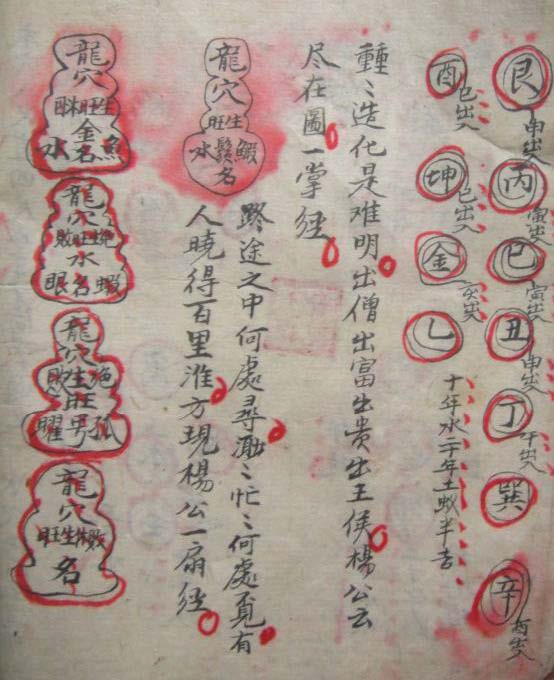 艮 申出入
丙 寅出
巳 寅出
丑 申出入
丁 午出入
巽
辛 酉出入
酉 巳出入
坤 巳出入
金 亥出入
乙
十年水二十年土蚁半吉
重〻造化是难明出僧出富出贵出王侯楊公云
尽在圖一掌經
路途之中何處尋 〻忙〻何處覓有
人曉得百里淮方現楊公一扇經
龍穴
旺生
水鬚蝦
名
龍穴
旺生
金
水名魚
龍穴
敗旺
水
眼名蝦
龍穴
敗生絶
旺
曜号孤
龍穴
旺生
名